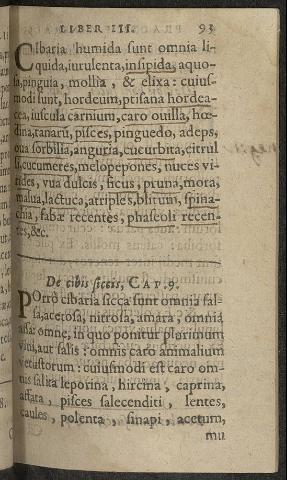 LIBER III. 93
CIbaria humida sunt omnia li-
quida, iurulenta, insipida, aquo-
sa, pinguia, mollia, & elixa: cuius-
modi sunt, hordeum, ptisana hordea-
cea, iuscula carnium, caro ouilla, hœ-
dina, tanarũ, pisces, pinguedo, adeps,
oua sorbilia, anguria, cucurbita, citrul
li, cucumeres, melopepones, nuces vi-
rides, vua dulcis, ficus, pruna, mora,
malua, lactuca, atriplex, blitum, spina-
chia, fabæ recentes, phaseoli recen-
tes, &c.
De cibis siccis, CAP. 9.
POrro cibaria sicca sunt omnia sal-
sa, acetosa, nitrosa, amara, omnia
assa: omne, in quo ponitur plurimum
vini, aut salis: omnis caro animalium
vetustorum: cuiusmodi est caro om-
nis salita leporina, hircina, caprina,
assata, pisces saleconditi, lentes,
caules, polenta, sinapi, acetum,
mu